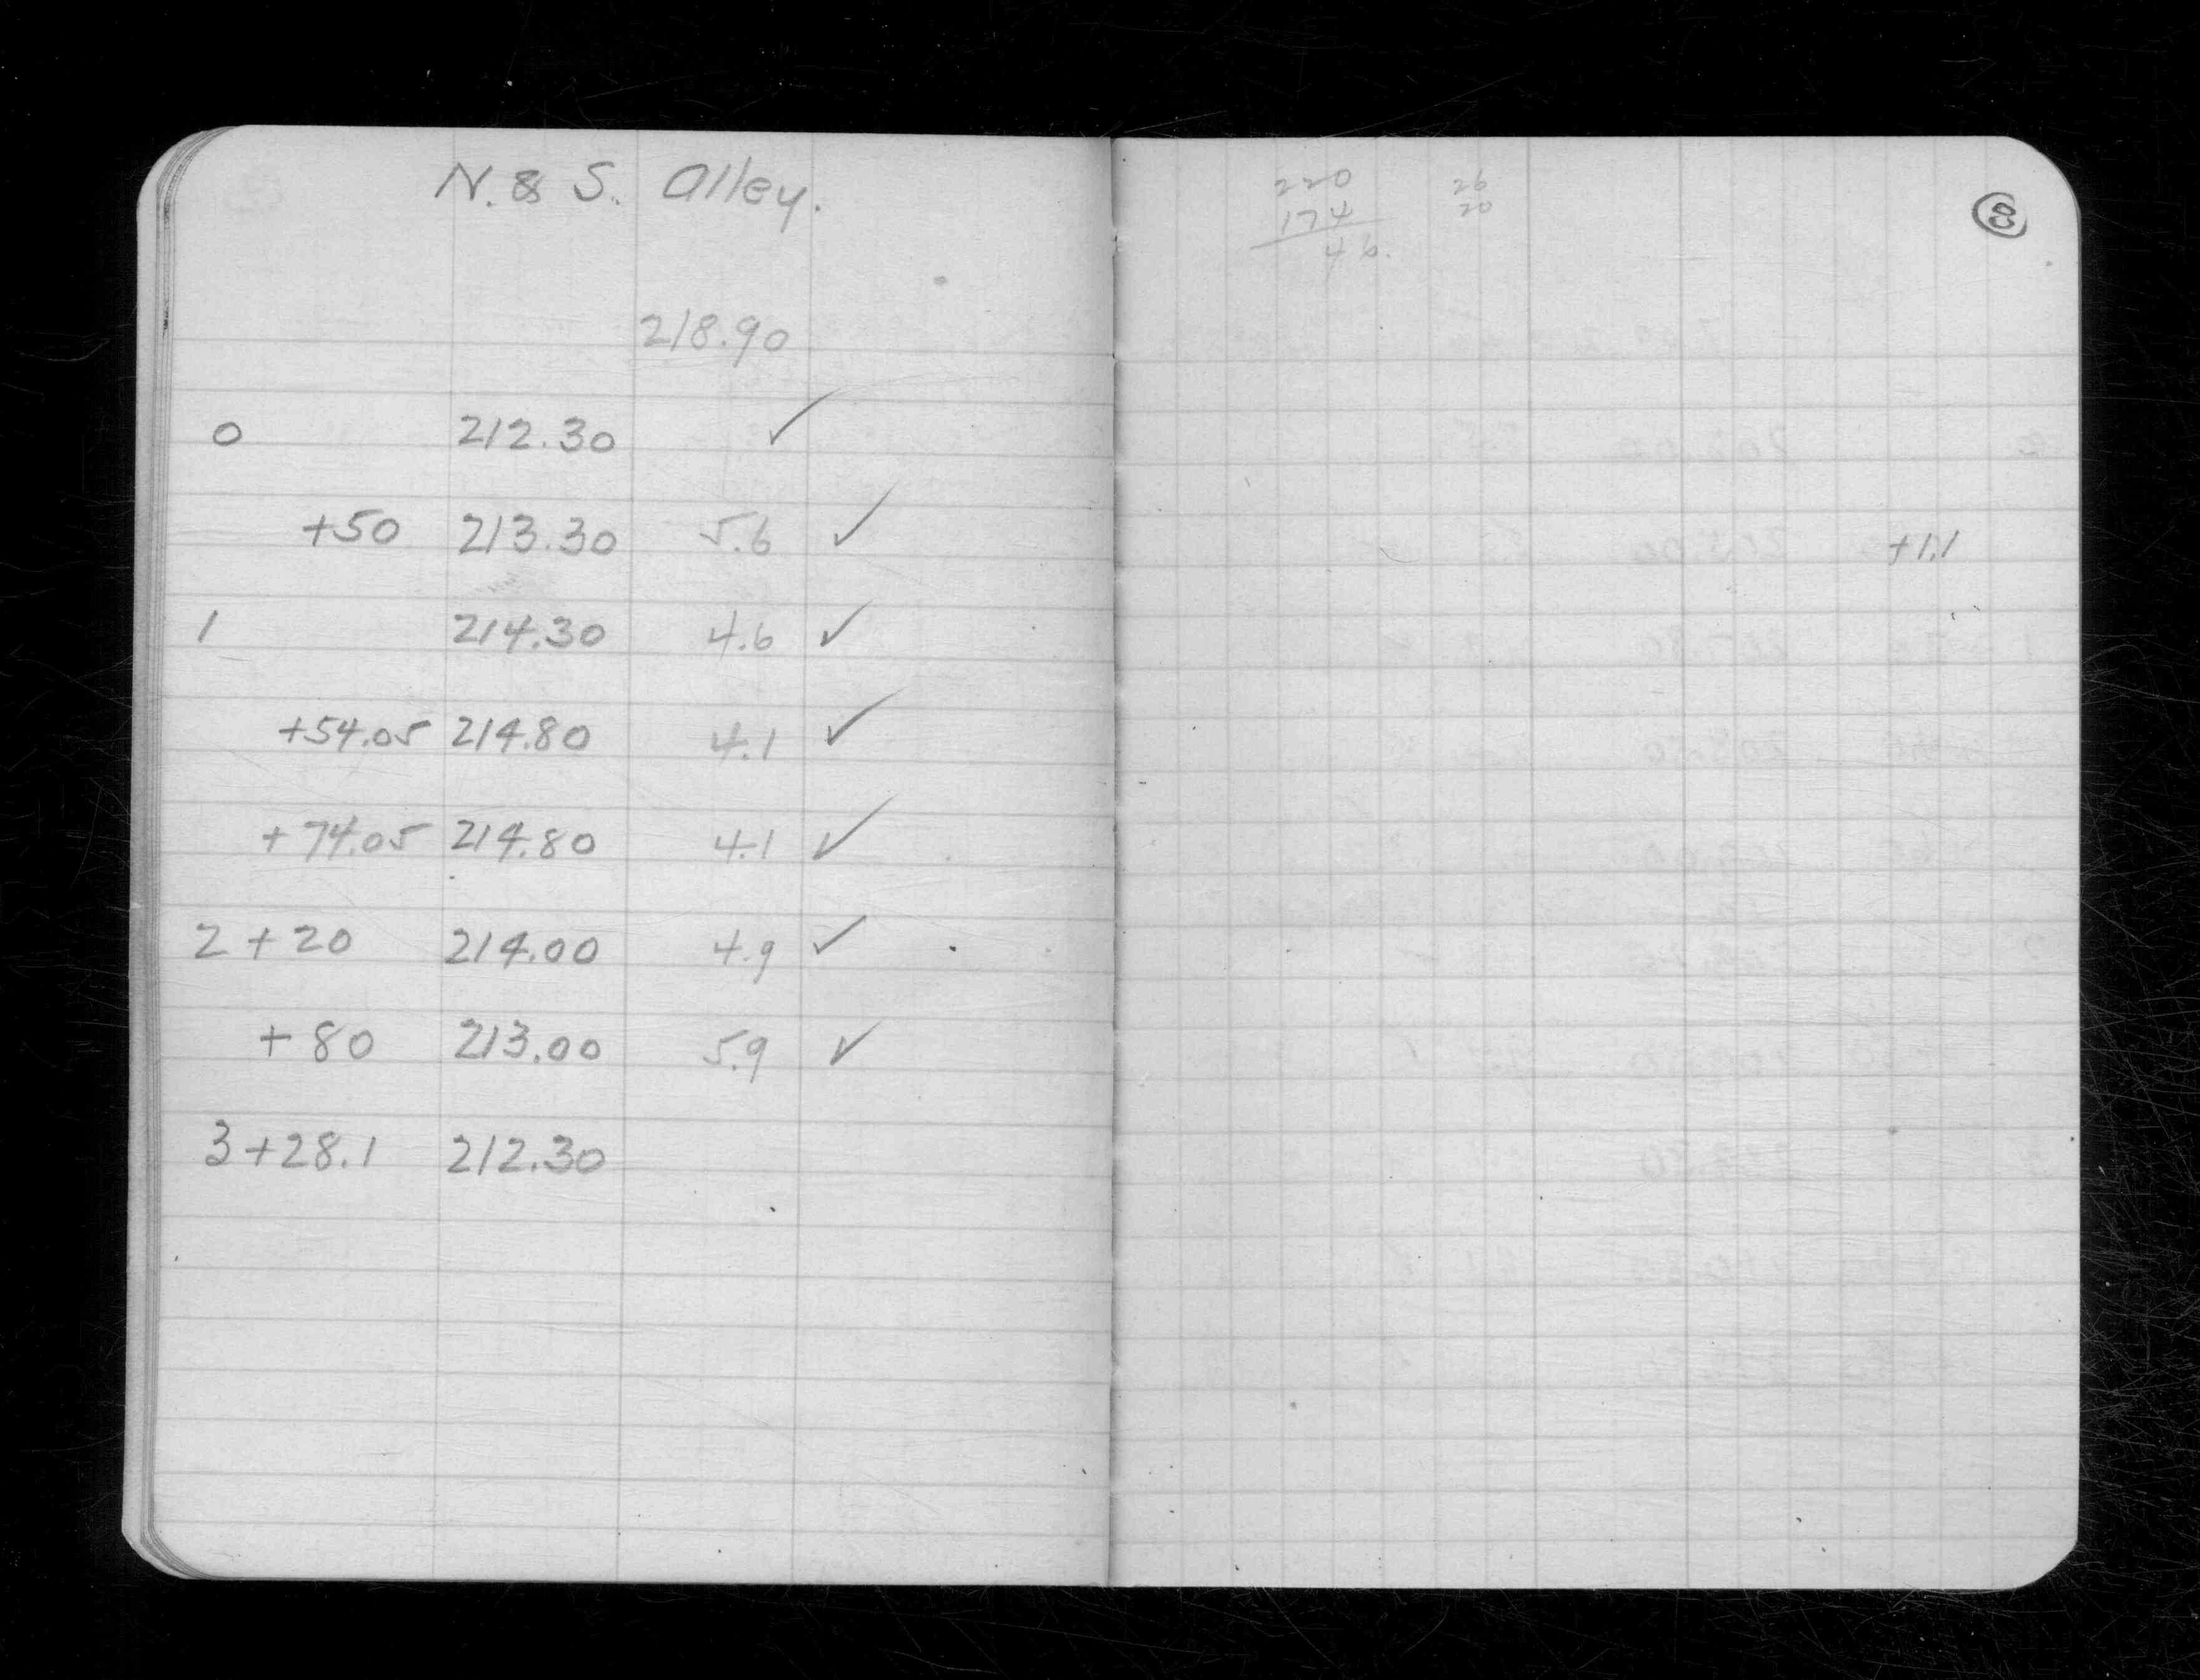 N. & S. Alley.
218.90
0 212.30 ✓
+50 213.30 5.6 ✓
1 214.30 4.6 ✓
+54.05 214.80 4.1 ✓
+74.05 214.80 4.1 ✓
2+20 214.00 4.9 ✓
+80 213.00 5.9 ✓
3+28.1 212.30
220 26
174 20
46.
8
+1.1